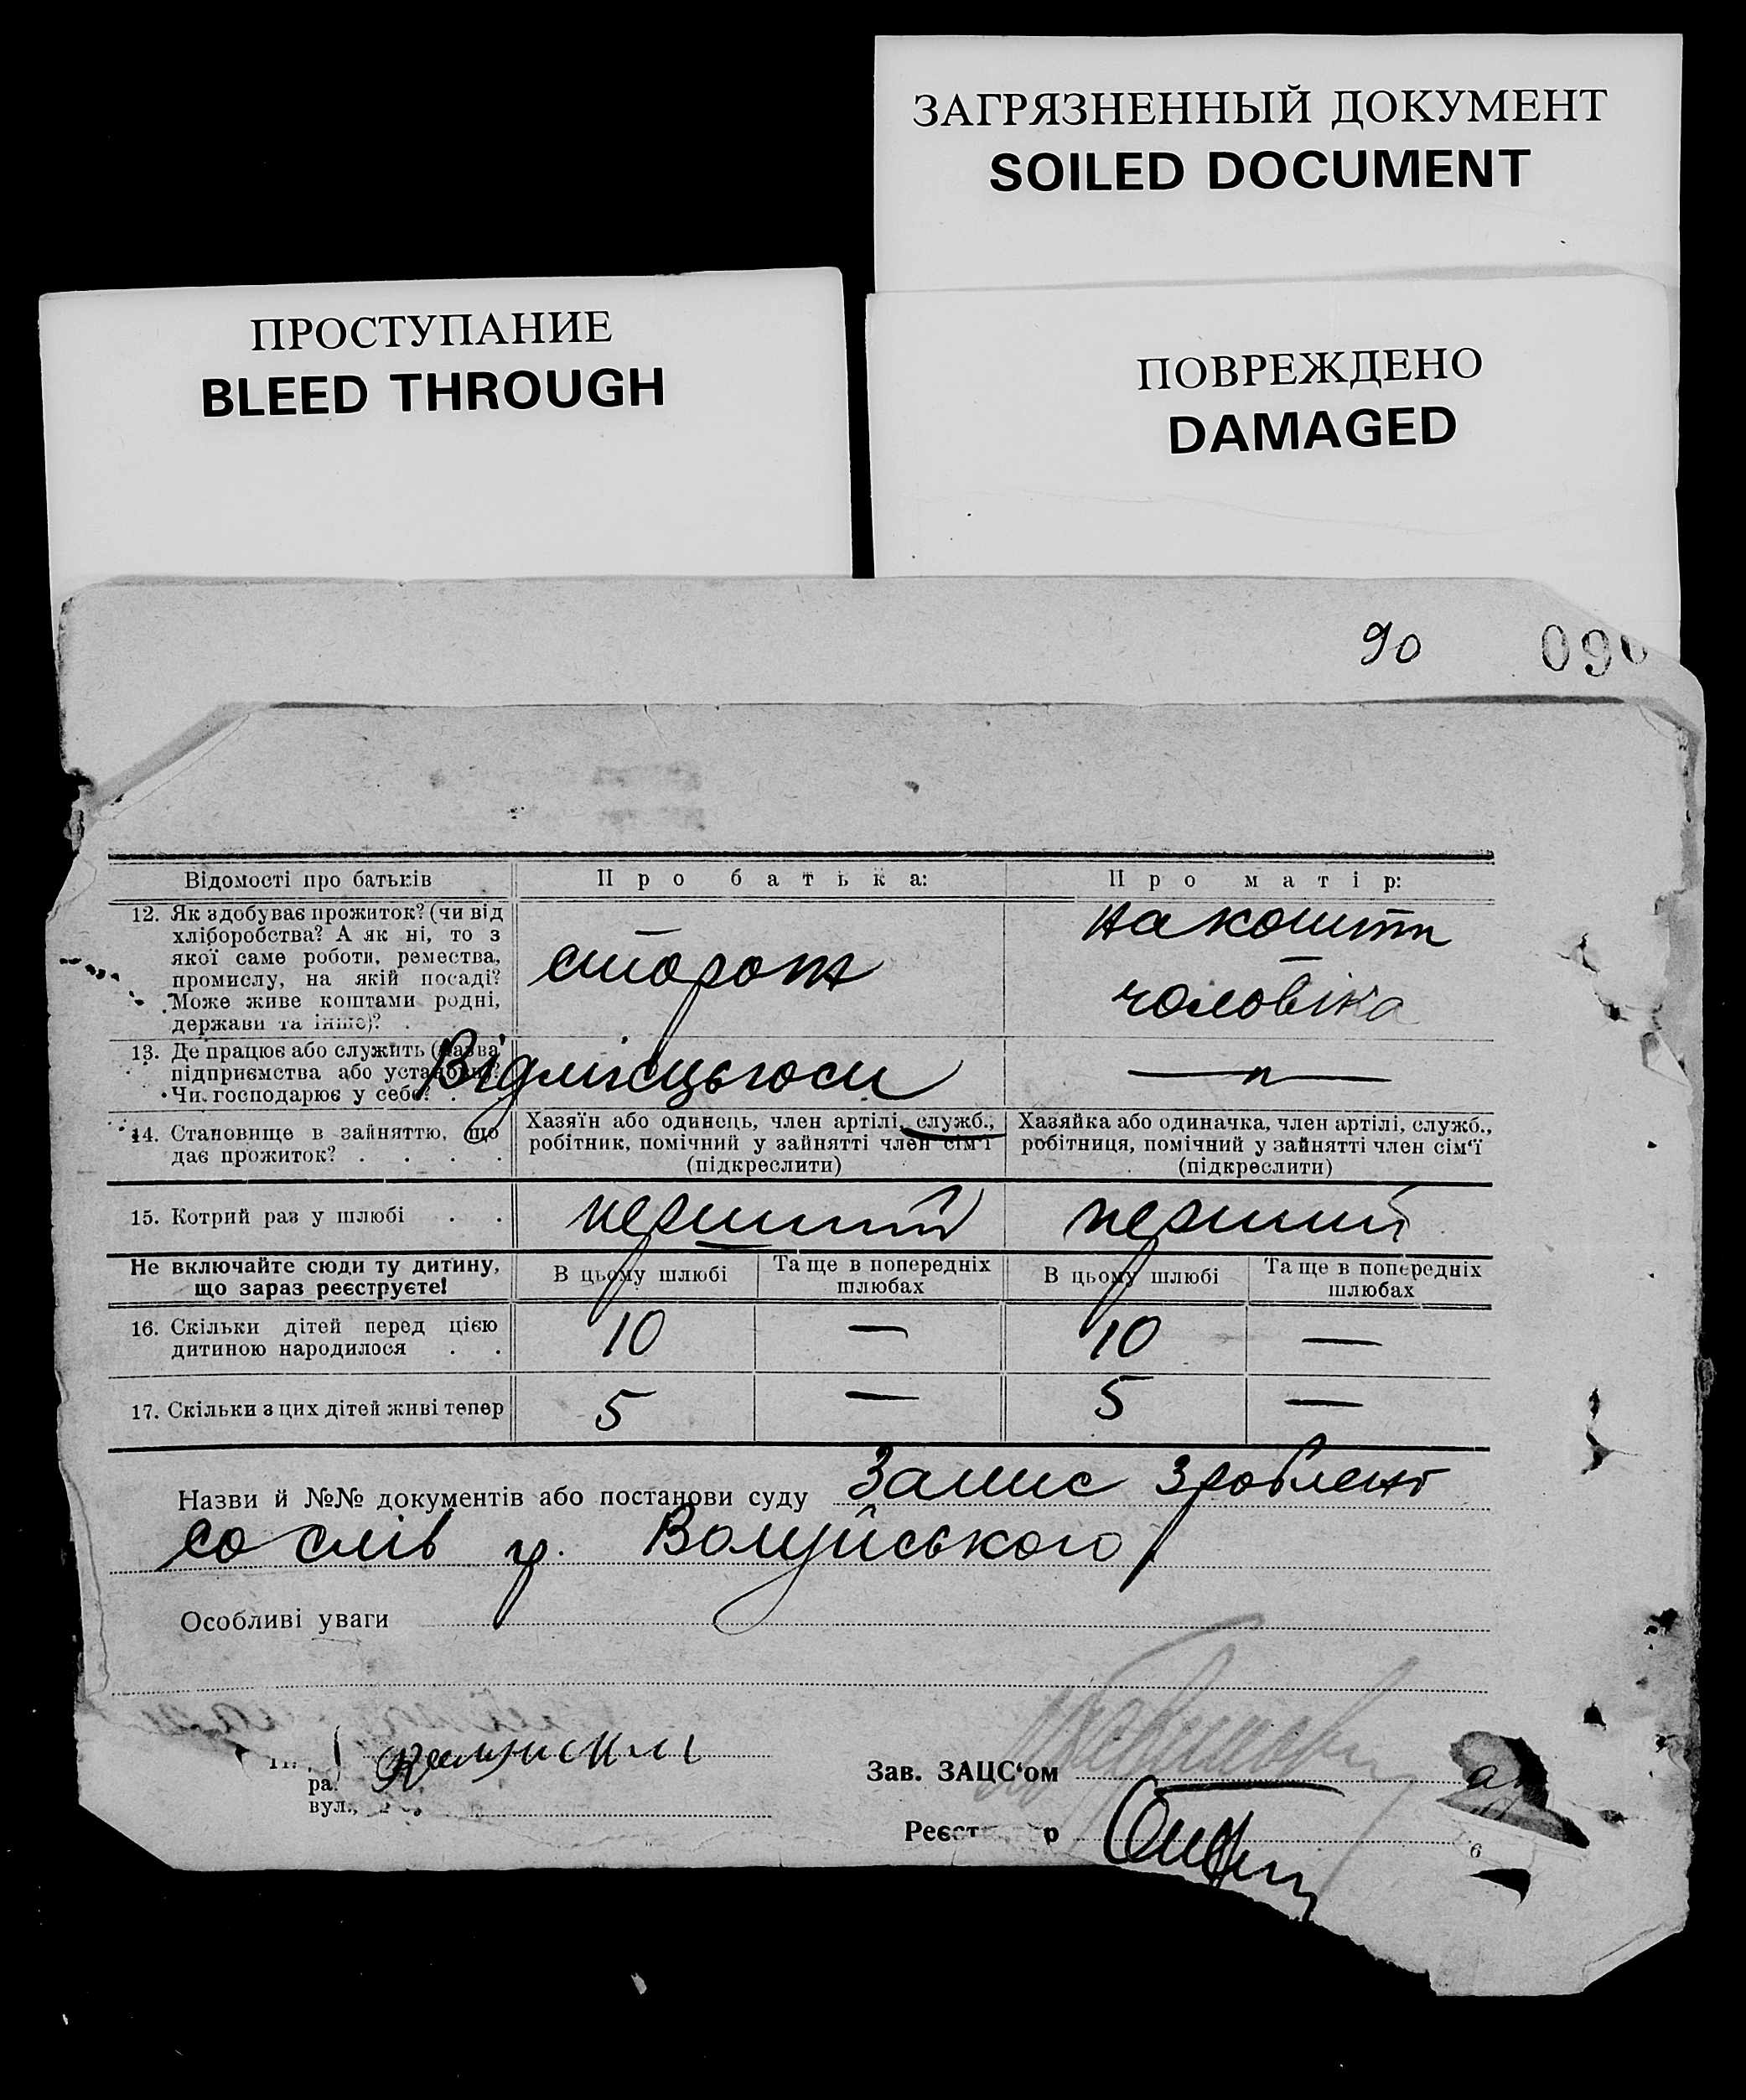 ЗАГРЯЗНЕННЫЙ ДОКУМЕНТ
SOILED DOCUMENT
ПРОСТУПАНИЕ
BLEED THROUGH
ПОВРЕЖДЕНО
DAMAGED
90 090
Відомості про батьків
Про батька:
Про матір:
12. Як здобуває прожиток? (чи від
хліборобства? А як ні, то з
якої саме роботи, ремества,
промислу, на якій посаді?
Може живе коштами родні,
держави та інше)? .
сторож
на кошти
чоловіка
13. Де працює або служить (назва
підприємства або установи)?
Чи господарює у себе? .
— „ —
14. Становище в зайняттю, що
дає прожиток? . . . .
Хазяїн або одинець, член артілі, служб.,
робітник, помічний у зайнятті член сім'ї
(підкреслити)
Хазяйка або одиначка, член артілі, служб.,
робітниця, помічний у зайнятті член сім'ї
(підкреслити)
15. Котрий раз у шлюбі . .
перший
перший
Не включайте сюди ту дитину,
що зараз реєструєте!
В цьому шлюбі
Та ще в попередніх
шлюбах
В цьому шлюбі
Та ще в попередніх
шлюбах
16. Скільки дітей перед цією
дитиною народилося . .
10 — 10 —
17. Скільки з цих дітей живі тепер
5 — 5 —
Назви й №№ документів або постанови суду Запис зроблено
со слів гр. Валуйського
Особливі уваги
ра.
вул.,
Зав. ЗАЦС'ом
Реєст р
6